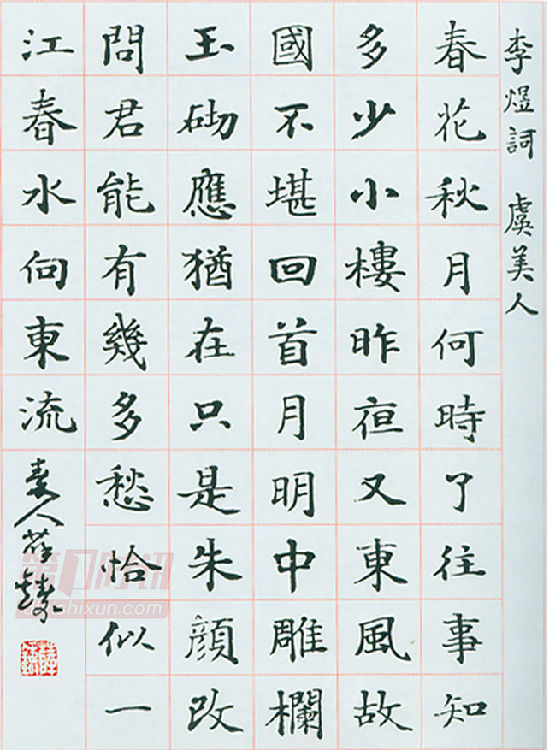 李煜詞 虞美人
春花秋月何時了往事知
多少小樓昨夜又東風故
國不堪回首月明中雕欄
玉砌應猶在只是朱顏改
問君能有幾多愁恰似一
江春水向東流
素人薛
第1时讯